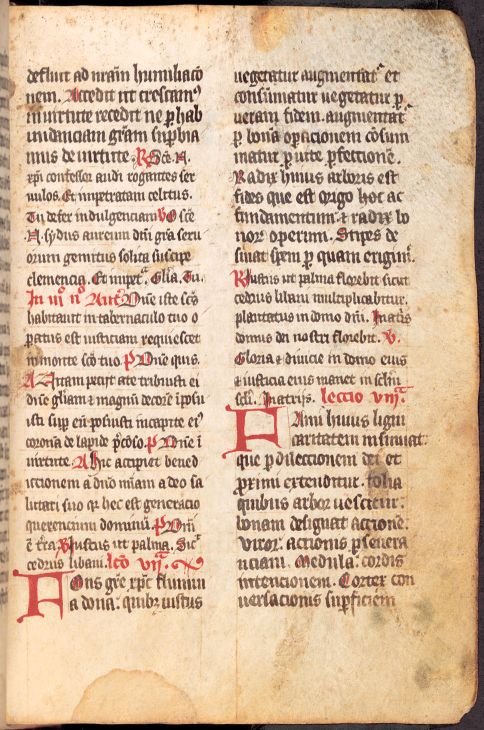 defluit ad nr̄am humiliaco
nem. Accedit ut crescam⁹
in virtute recedit ne ꝑ hab
undanciam gr̄am supbia
mus de virtute. R Sc̄e N.
xp̄i confessor audi rogantes ser
uulos. Et impetratam celitus.
Tu defer indulgenciam V O sc̄e
N. sydus aureum dn̄i gr̄a seru
orum gemitus solita suscipe
clemencia. Et impet̄. Gl̄ia. Tu.
In iii° n° Ant̄ Dn̄e iste sc̄s
habitauit in tabernaculo tuo o
patus est iusticiam requiescet
in monte sc̄o tuo. P Dn̄e quis.
A Vitam petijt a te tribuisti ei
dn̄e gl̄iam et magnū decorē īposu
isti supp eū posuisti in capite ei⁹
coronā de lapide p̄coso. P Dn̄e ī
virtute. A Hic accipiet bened
ictionem a dn̄o mi̅am a deo sa
lutari suo q̄ hec est generacio
querencium dominū. P Dn̄i
ē t̄ra. V Iustus ut palma. Sic̄
cedrus libani. lc̄o vij.
Fons gr̄e xp̄c fluuiu
a dona: quibꝫ iustus
vegetatur augmentat᷑ et
consūmatur vegetatur ꝑ
veram fidem. augmentat᷑
ꝑ bonā opacionem cōsum
matur ꝑ vite ꝑfectionē.
Radix huius arboris est
fides que est origo hoc ac
fundamentum. et radix bo
norū operum. Stipes de
sinat spem ꝑ quam erigim᷑.
R Iustus ut palma florebit sicut
cedrus libani multiplicabitur.
plantatus in domo dn̄i. In atrijs
domus dei nostri florebit. V.
Gloria et diuicie in domo eius
et iusticia eius manet in sc̄lm
sc̄li. In atrijs. lectio viij.
Rami huius ligni
caritatem insinuat:
que ꝑ dileccionem dei et
proximi extenditur. folia
quibus arbor vescitur.
bonam designat actionē.
Viror: actionis ꝑseuera
nciam. Medula: cordis
intencionem. Cortex con
versacionis suꝑficiem